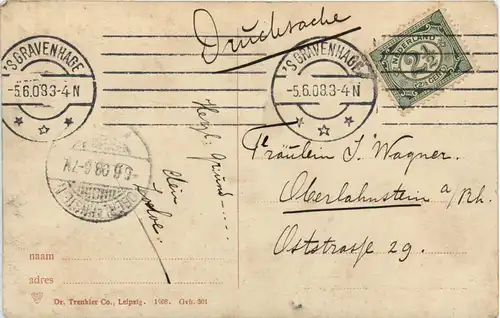 Drucksache
'S GRAVENHAGE
-5.6.08.3-4N
'S GRAVENHAGE
-5.6.08.3-4N
NEDERLAND
2½
Herzl. Gruss
Dein
OBERLAHNSTEIN
Fräulein J. Wagner.
Oberlahnstein a/Rh.
Oststrasse 29.
naam
adres
Dr. Trenkler Co., Leipzig. 1908. Gvh. 301